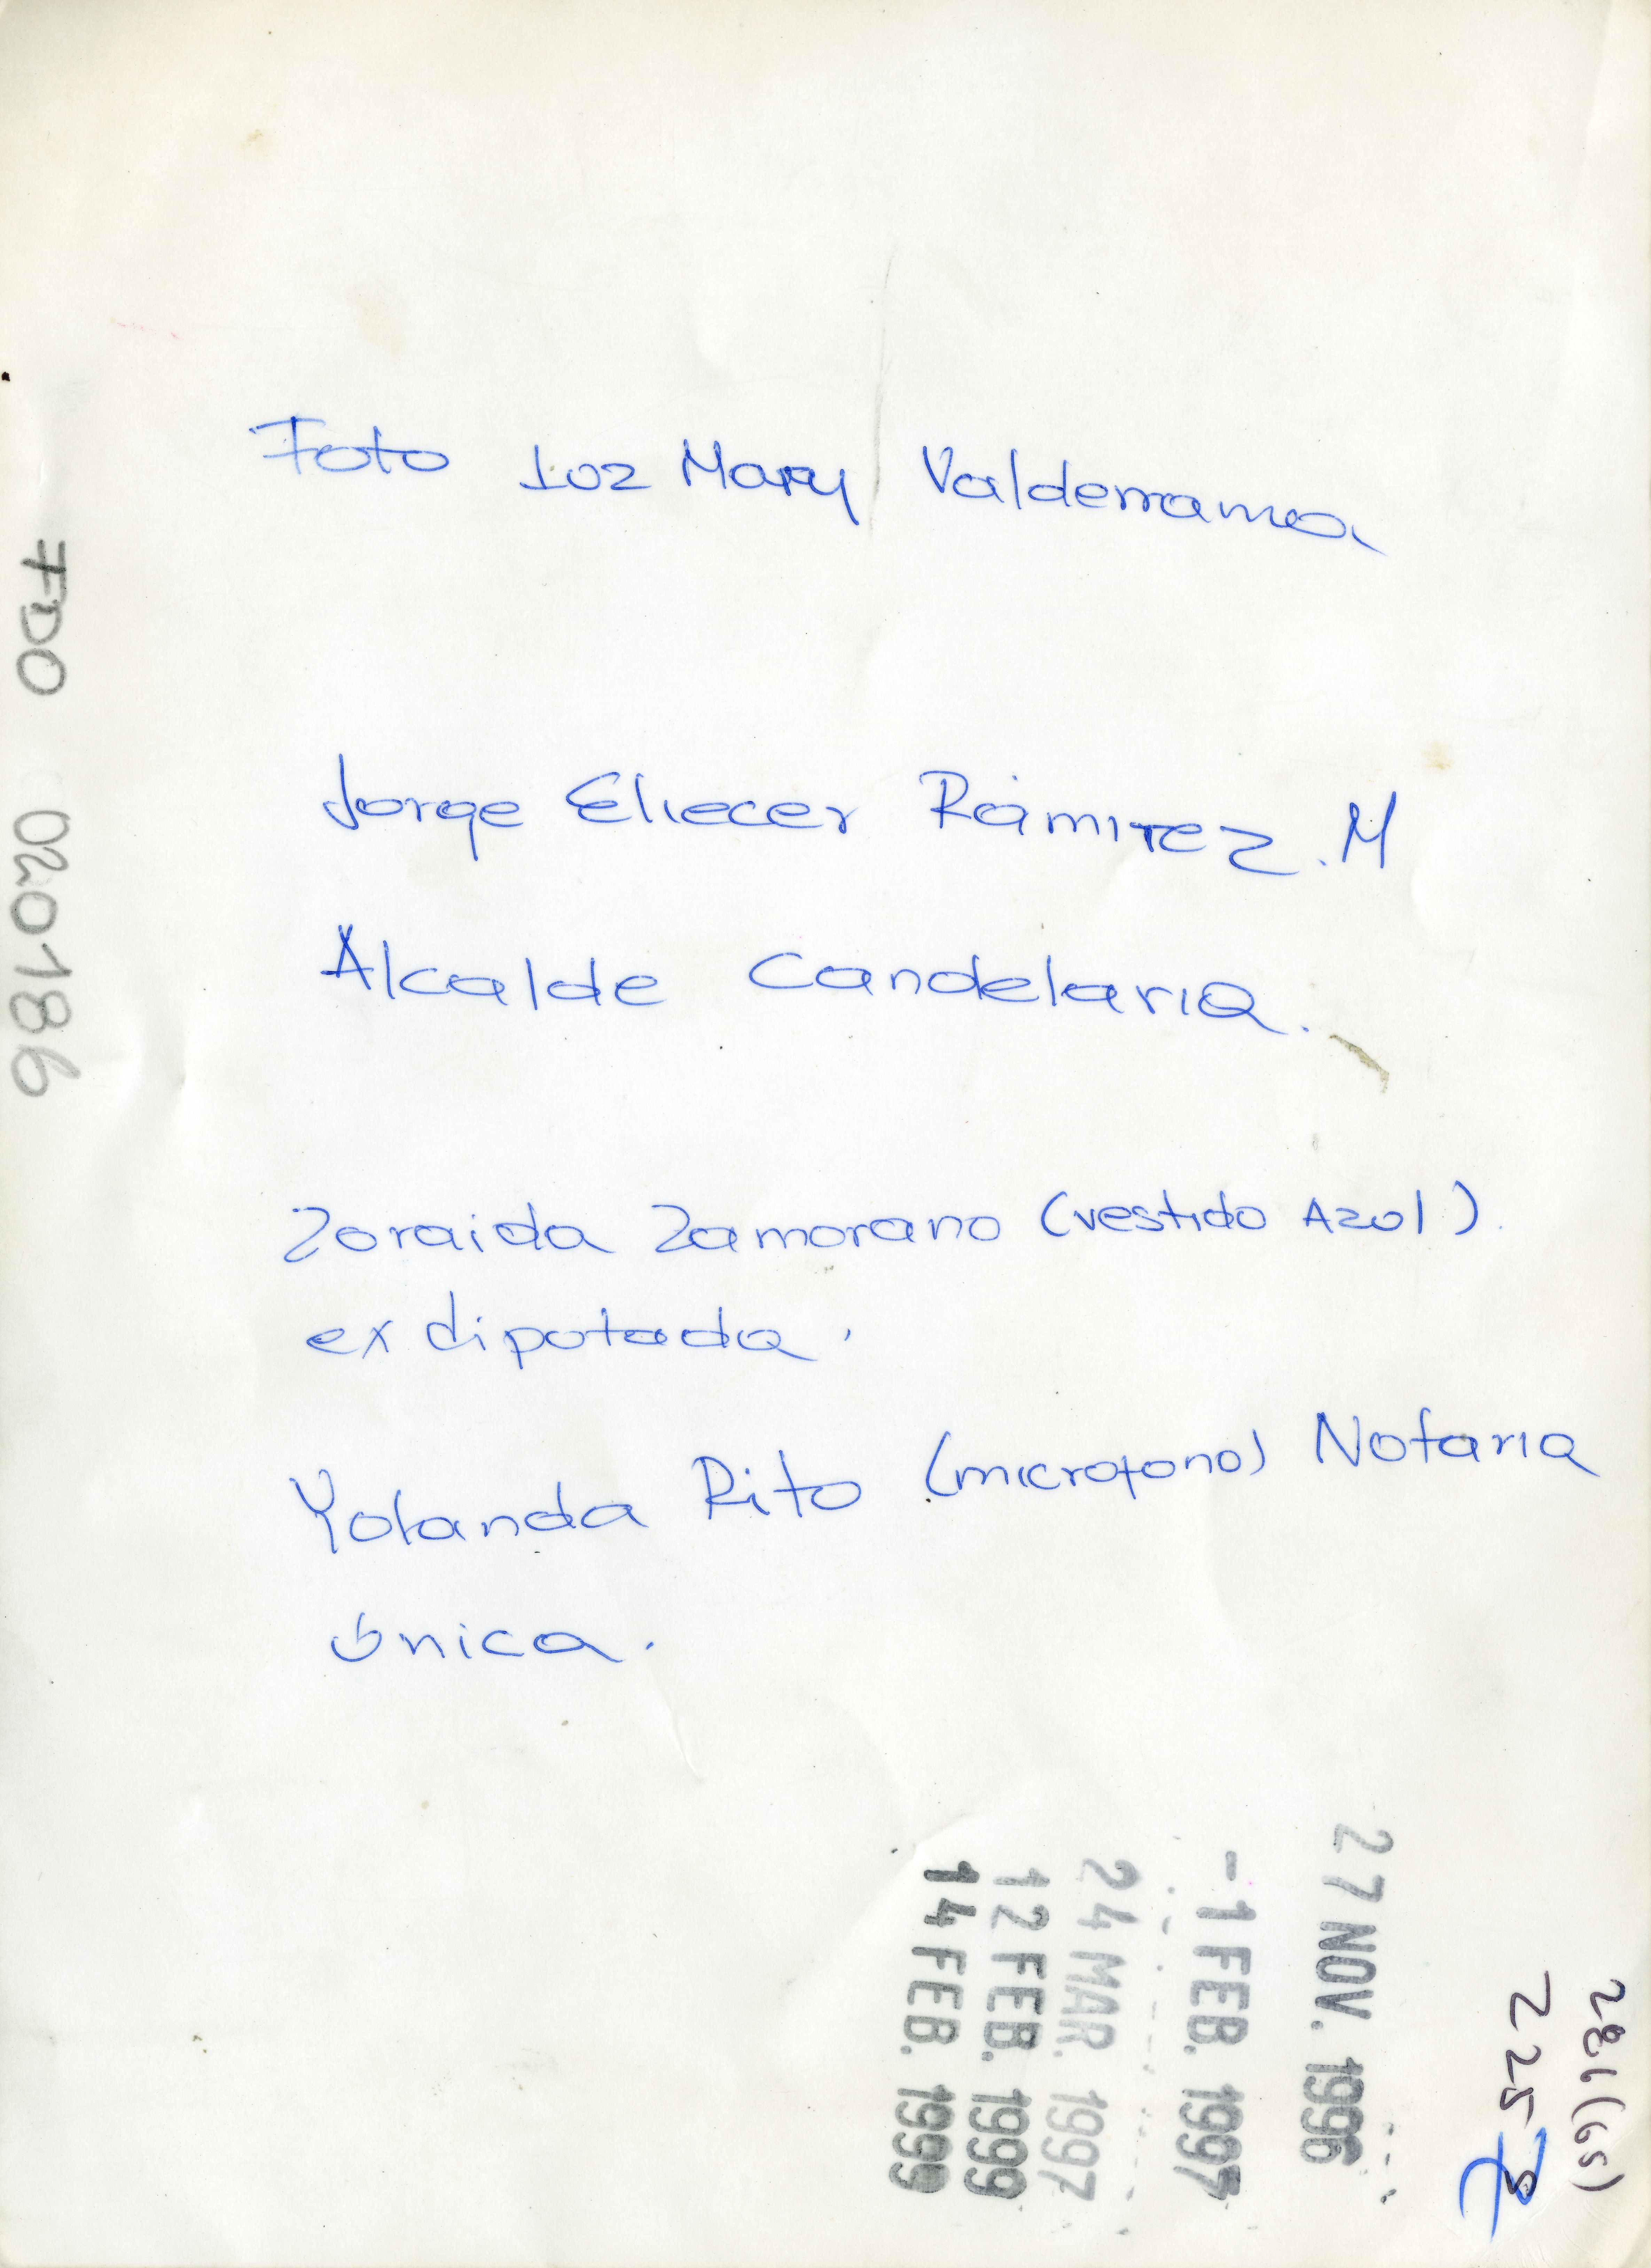 Foto Luz Mary Valderrama
Jorge Eliecer Ramirez. M
Alcalde Candelaria.
Zoraida Zamorano (vestido Azul).
ex diputada.
Yolanda Rito (microfono) Notaria
única.
FDO 020186
27 NOV. 1996
-1 FEB. 1997
24 MAR. 1997
12 FEB. 1999
14 FEB. 1999